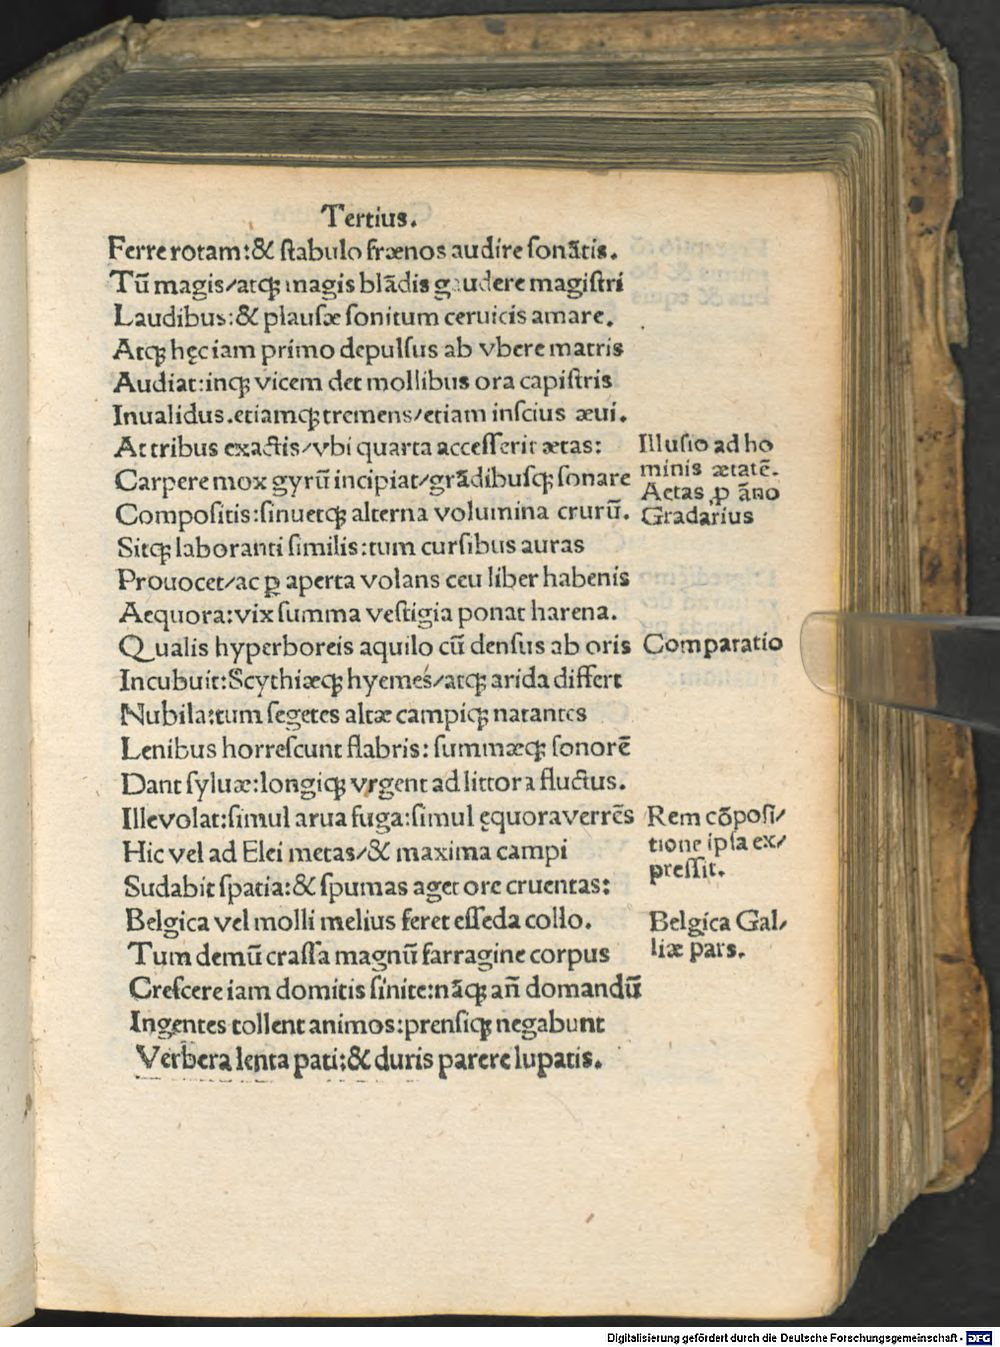 Tertius.
Ferre rotam:& ſtabulo frænos audire ſonãtis.
Tũ magis/atqꝫ magis blãdis gaudere magiſtri
Laudibus:& plauſæ ſonitum ceruicis amare.
Atqꝫ hęc iam primo depulſus ab vbere matris
Audiat:inqꝫ vicem det mollibus ora capiſtris
Inualidus.etiamqꝫ tremens/etiam inſcius æui.
At tribus exactis/vbi quarta acceſſerit ætas:
Illuſio ad ho
minis ætatẽ.
Carpere mox gyrũ incipiat/grãdibuſqꝫ ſonare
Aetas ꝓ ãno
Compoſitis:ſinuetqꝫ alterna volumina crurũ.
Gradarius
Sitqꝫ laboranti ſimilis:tum curſibus auras
Prouocet/ac ꝑ aperta volans ceu liber habenis
Aequora:vix ſumma veſtigia ponat harena.
Qualis hyperboreis aquilo cũ denſus ab oris
Comparatio
Incubuit:Scythiæqꝫ hyemes/atqꝫ arida differt
Nubila:tum ſegetes altæ campiqꝫ natantes
Lenibus horreſcunt flabris: ſummæqꝫ ſonorẽ
Dant ſyluæ:longiqꝫ vrgent ad littora fluctus.
Ille volat:ſimul arua fuga:ſimul ęquora verrẽs
Rem cõpoſi/
tione ipſa ex/
preſſit.
Hic vel ad Elei metas/& maxima campi
Sudabit ſpatia:& ſpumas aget ore cruentas:
Belgica vel molli melius feret eſſeda collo.
Belgica Gal/
liæ pars.
Tum demũ craſſa magnũ farragine corpus
Creſcere iam domitis ſinite:nãqꝫ añ domandũ
Ingentes tollent animos:prenſiqꝫ negabunt
Verbera lenta pati:& duris parere lupatis.
Digitalisierung gefördert durch die Deutsche Forschungsgemeinschaft - DFG